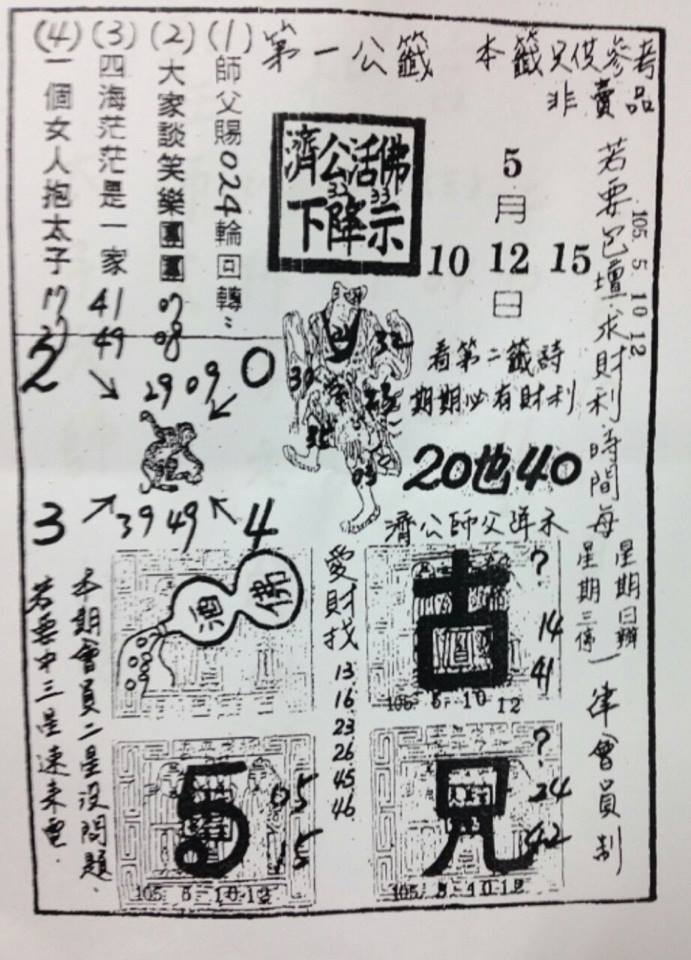 第一公籤
本籤只供參考
非賣品
(1) 師父賜024輪回轉
(2) 大家談笑樂團團 07 08
(3) 四海茫茫是一家 41 49
(4) 一個女人抱太子 17
濟公活佛
32 33
下降示
5
月
10 12 15
日
若要包壇求財利時間每
星期日辦
星期三停
一律會員制
105 5 10 12
看第二籤詩
期期必有財利
20也40
濟公師父降示
2
0
29 09
39 49
3
4
32
05
本期會員二星沒問題
若要中三星速來電
酒
佛
愛財找
13
16
23
26
45
46
古
?
14
41
105 5 10 12
5
05
15
105 5 10 12
兄
?
24
42
105 5 10 12